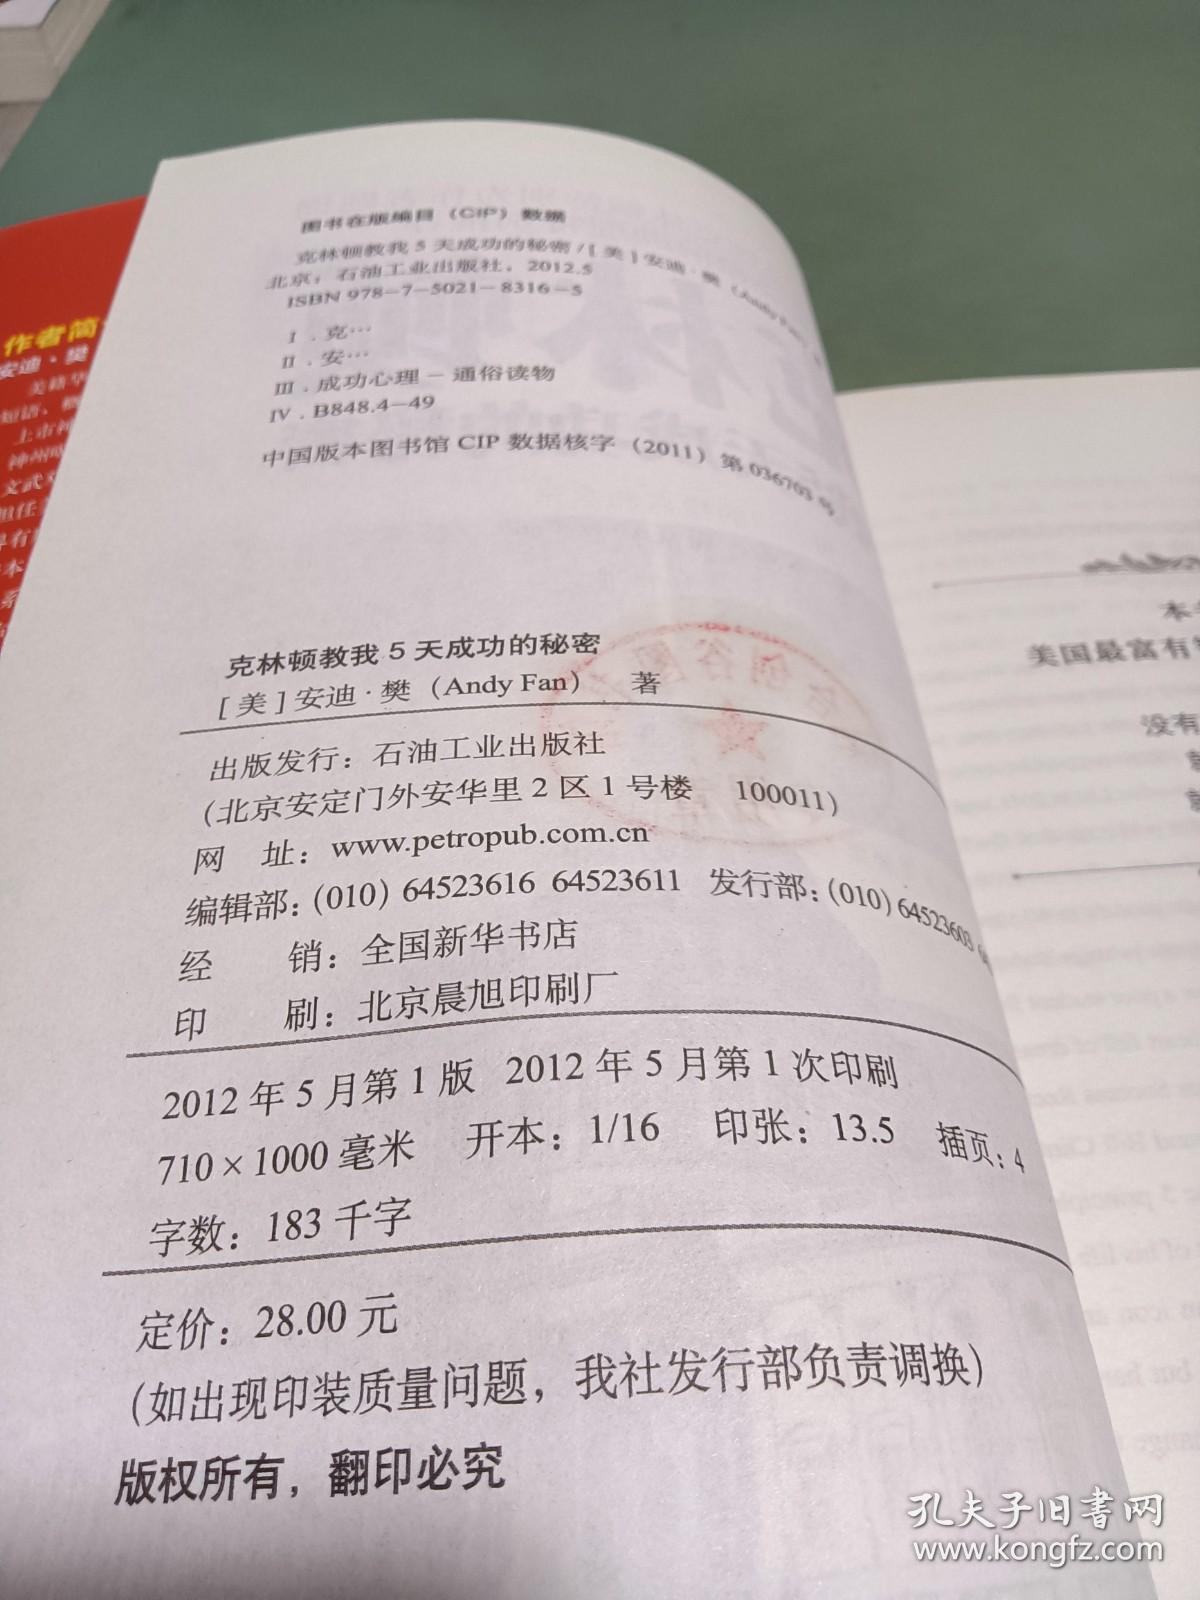 图书在版编目（CIP）数据
克林顿教我5天成功的秘密/［美］安迪·樊（Andy Fan）
北京：石油工业出版社，2012.5
ISBN 978-7-5021-8316-5
Ⅰ.克…
Ⅱ.安…
Ⅲ.成功心理-通俗读物
Ⅳ.B848.4-49
中国版本图书馆CIP数据核字（2011）第036703号
克林顿教我5天成功的秘密
［美］安迪·樊（Andy Fan） 著
出版发行：石油工业出版社
（北京安定门外安华里2区1号楼 100011）
网 址：www.petropub.com.cn
编辑部：（010）64523616 64523611 发行部：（010）64523603
经 销：全国新华书店
印 刷：北京晨旭印刷厂
2012年5月第1版 2012年5月第1次印刷
710×1000毫米 开本：1/16 印张：13.5 插页：4
字数：183千字
定价：28.00元
（如出现印装质量问题，我社发行部负责调换）
版权所有，翻印必究
作者简
安迪·樊
美籍华
短语、
上市
神州
文武
担任
美国最富有
没有
孔夫子旧书网
www.kongfz.com